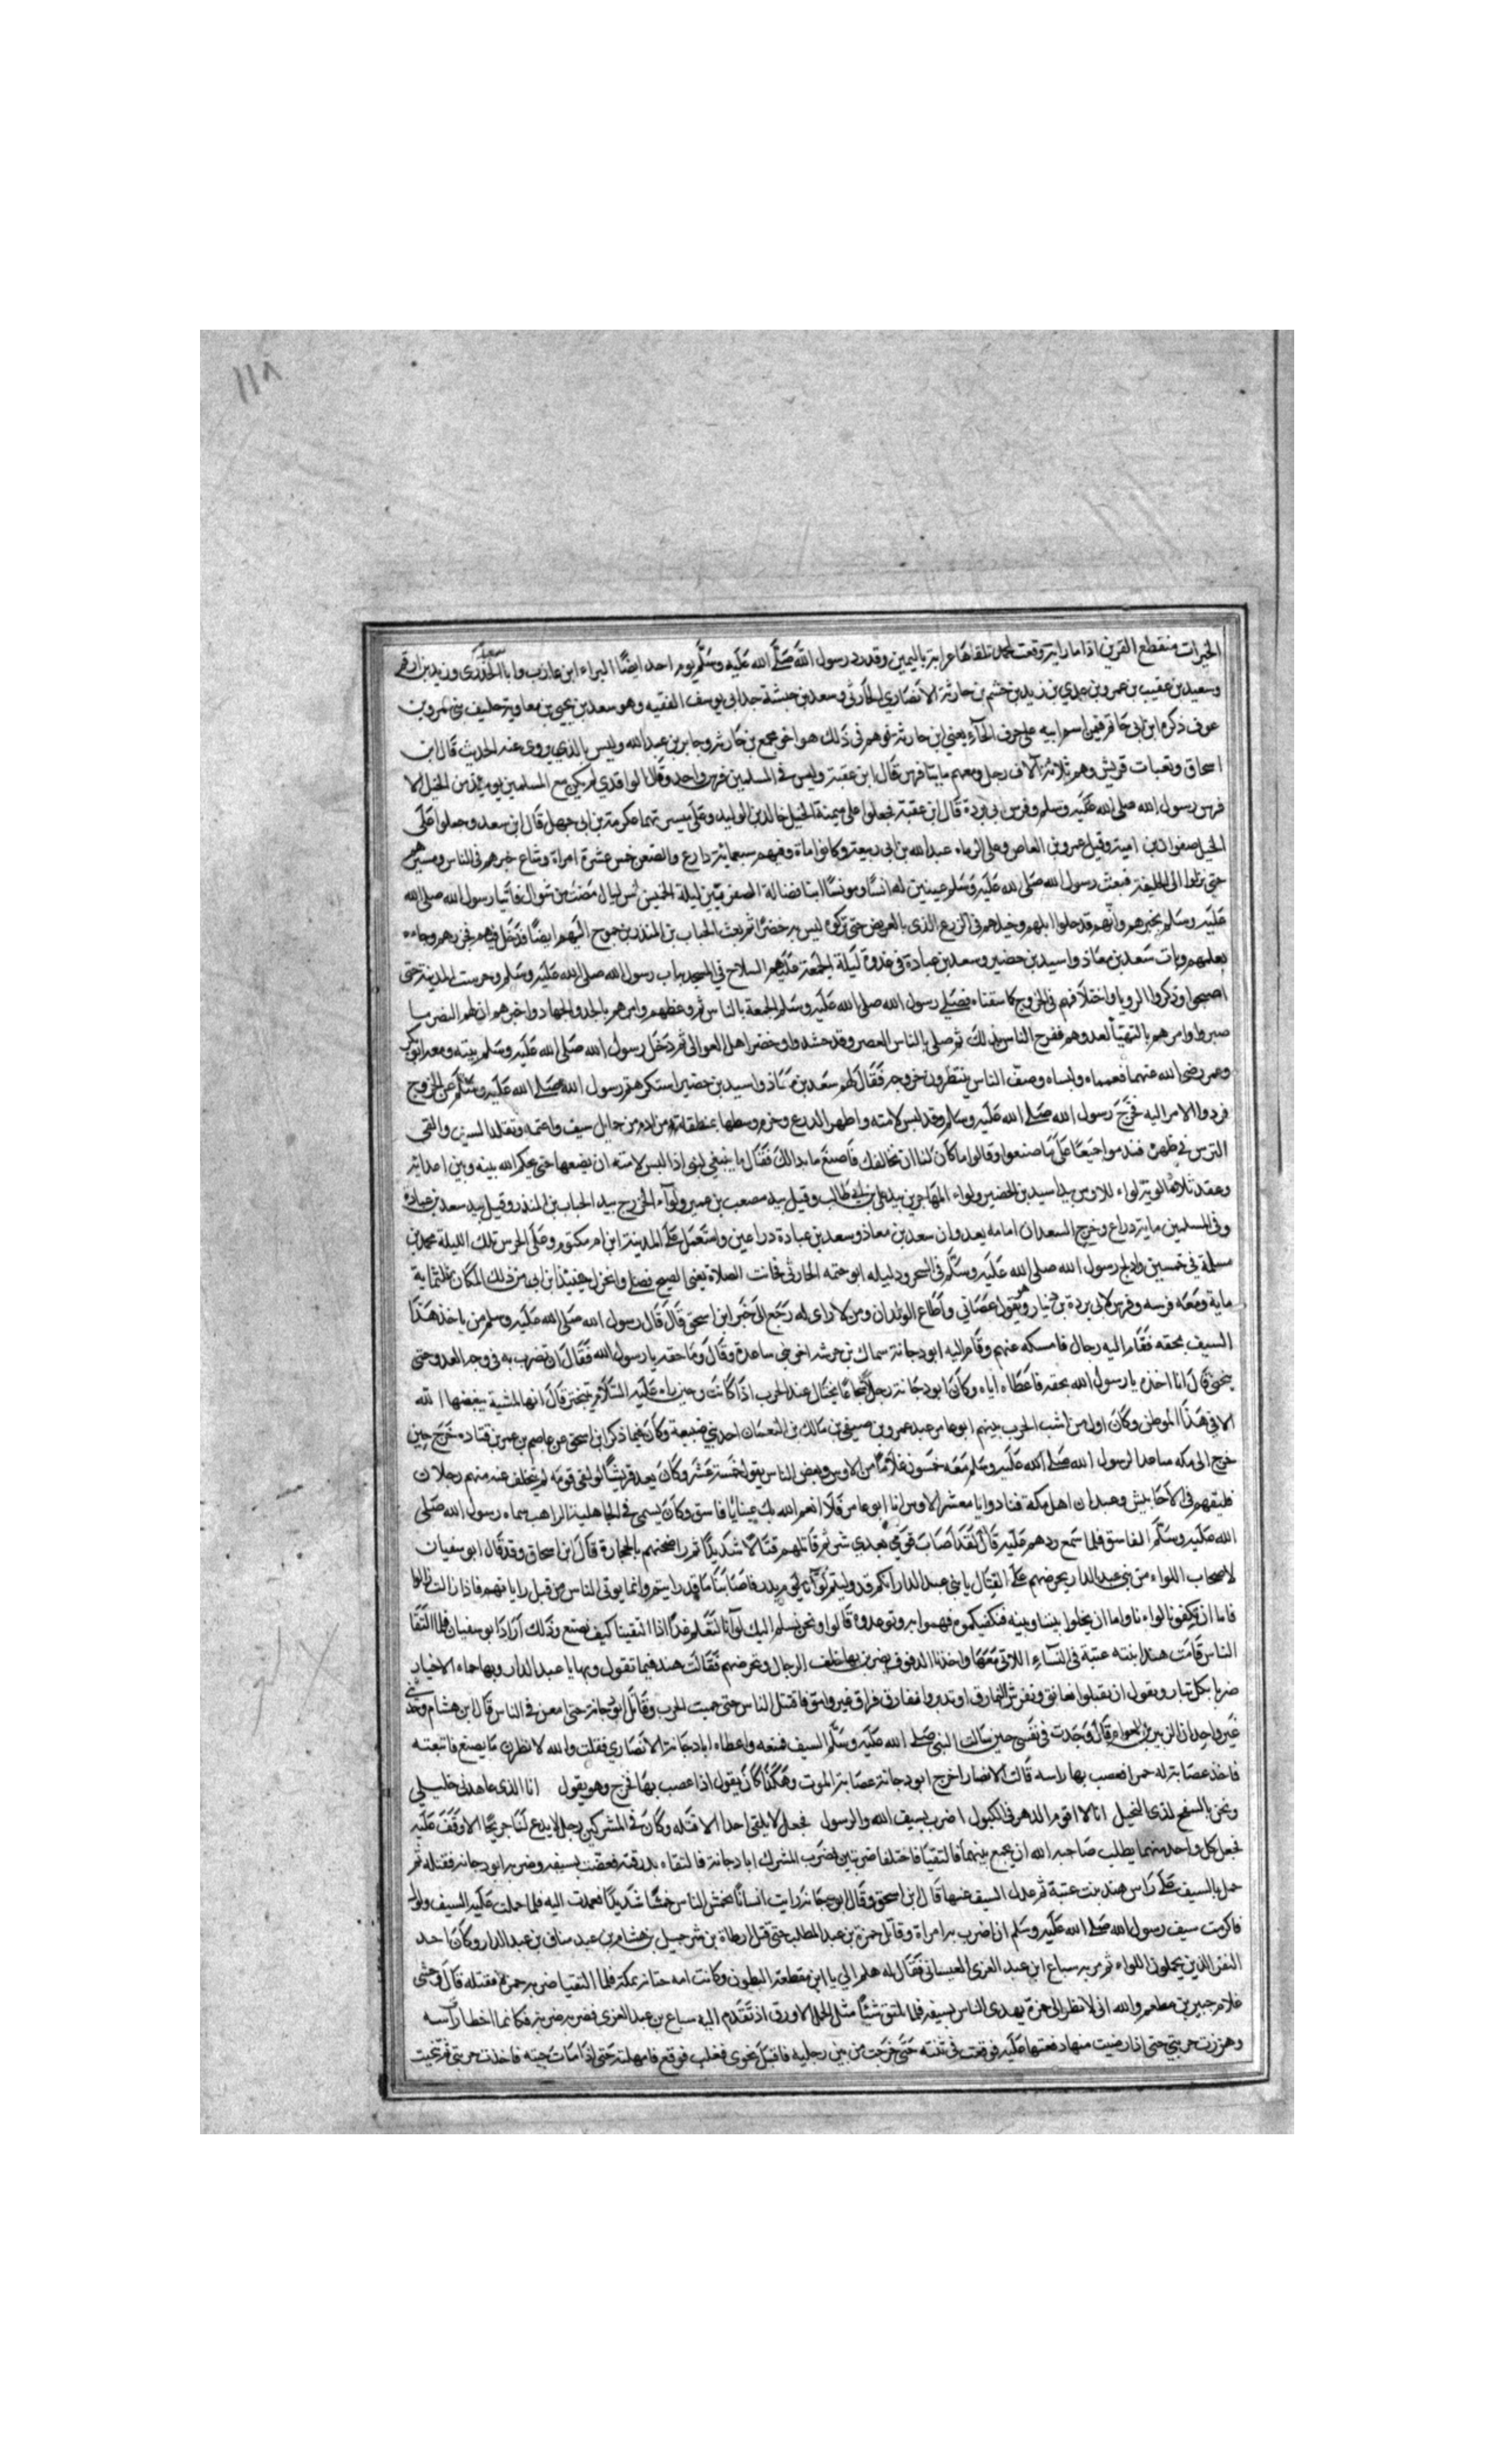 ١١٨
الخيرات منقطع القرين اذا ما راية رفعت لمجد تلقاها عرابة باليمين وقد رد رسول الله صلى الله عليه وسلم يوم احد ايضا البراء ابن عازب وابا سعيد الخدري وزيد بن ارقم
وسعيد بن عقيب بن عمرو بن عدي بن زيد بن خشم بن حارثة الانصاري الحارثي وسعد بن حبشة جد ابي يوسف الفقيه وهو سعد بن بحي بن معاوية حليف بني عمرو بن
عوف ذكره ابن ابي حاتم فيمن اسم ابيه على حرف الحآء يعني ابن حارثة هو اخو مجمع بن حارثة وجابر بن عبد الله وليس بالذي يروى عنه الحديث قال ابن
اسحاق وتعبات قريش وهم ثلاثة آلاف رجل ومعهم مايتا فرس قال ابن عقبة وليس في المسلمين فرس واحد وقال الواقدي لم يكن مع المسلمين يومئذ من الخيل الا
فرس رسول الله صلى الله عليه وسلم وفرس ابي بردة قال ابن عقبة فجعلوا على ميمنة الخيل خالد بن الوليد وعلى ميسرتها عكرمة بن ابي جهل قال ابن سعد وجعلوا على
الخيل صفوان بن امية وقيل عمرو بن العاص وعلى الرماه عبد الله بن ابي ربيعة وكانوا ماة وفيهم سبعماية دارع والضعن خمس عشرة امراة وشاع خبرهم في الناس ومسيرهم
حتى نزلوا الى الحليفة فبعث رسول الله صلى الله عليه وسلم عينين له انسا ومونسا ابنا فضالة الصفريين ليلة الخميس لخمس ليال مضت من شوال فاتيا رسول الله صلى الله
عليه وسلم بخبرهم وانهم قد حلوا ابلهم وخيلهم في الزرع الذي بالعريض حتى تركوه ليس به خضرا ثم بعث الحباب بن المنذر بن جموح اليهم ايضا فدخل فيهم فحزرهم وجاءه
بعلمهم وبات سعد بن معاذ واسيد بن حضير وسعد بن عبادة في عدوة ليلة الجمعة عليهم السلاح في المسجد بباب رسول الله صلى الله عليه وسلم وحرست المدينة حتى
اصبحوا وذكروا الرويا واختلافهم في الخروج كما سقناه فصلى رسول الله صلى الله عليه وسلم الجمعة بالناس ثم وعظهم وامرهم بالجد والجهاد واخبرهم ان لهم النصر ما
صبروا وامرهم بالتهيا لعدوهم ففرح الناس بذلك ثم صلى بالناس العصر وقد حشدوا وحضر اهل العوالي ثم دخل رسول الله صلى الله عليه وسلم بيته ومعه ابو بكر
وعمر رضي الله عنهما فعمماه ولبساه وصف الناس ينتظرون خروجه فقال لهم سعد بن معاذ واسيد بن حضير استكرهتم رسول الله صلى الله عليه وسلم على الخروج
فردوا الامر اليه فخرج رسول الله صلى الله عليه وسلم وقد لبس لامته واظهر الدرع وحزم وسطها بمنطقة من ادم من حمايل سيف واعتم وتقلد السيف والقى
الترس في ظهره فندموا جميعا على ما صنعوا وقالوا ما كان لنا ان نخالفك فاصنع ما بدا لك فقال ما ينبغي لنبي اذا لبس لامته ان يضعها حتى يحكم الله بينه وبين اعدائه
وعقد ثلاثة الوية لواء للاوس بيد اسيد بن الحضير ولواء المهاجرين بيد علي بن ابي طالب وقيل بيد مصعب بن عمير ولوآء الخزرج بيد الحباب بن المنذر وقيل بيد سعد بن عبادة
وفي المسلمين ماية دراع وخرج السعدان امامه يعدوان سعد بن معاذ وسعد بن عبادة دراعين واستعمل على المدينة ابن ام مكتوم وعلى الحرس تلك الليلة محمد بن
مسلمة في خمسين وادلج رسول الله صلى الله عليه وسلم في السحر ودليله ابو حتمه الحارثي فحانت الصلاة يعني الصبح فصلى وانخزل حينيذ ابن ابي من ذلك المكان بثلثماية
ماية ومعه فرسه وفرس لابي بردة بن نيار وهو يقول عصاني واطاع الولدان ومن لا راى له رجع الى خبر ابن اسحق قال قال رسول الله صلى الله عليه وسلم من ياخذ هذا
السيف بحقه فقام اليه رجال فامسكه عنهم وقام اليه ابو دجانة سماك بن خرشه اخو بني ساعدة وقال وما حقه يا رسول الله فقال ان تضرب به في وجه العدو حتى
ينحني قال انا اخذه يا رسول الله بحقه فاعطاه اياه وكان ابو دجانة رجلا شجاعا يختال عند الحرب اذا كانت وحين راه عليه السلام يتبختر قال انها لمشية يبغضها الله
الا في هذا الموطن وكان اول من انشب الحرب بينهم ابو عامر عبد عمرو بن صيفي بن مالك بن النعمان احد بني ضبيعة وكان فيما ذكر ابن اسحق عن عاصم بن عمر بن قتاده خرج حين
خرج الى مكه مباعدا لرسول الله صلى الله عليه وسلم معه خمسون غلاما من الاوس وبعض الناس يقول خمسة عشر وكان يعد قريشا لو لقى قومه لم يتخلف عنه منهم رجلان
فلقيهم في الاحابيش وعبدان اهل مكة فنادى يا معشر الاوس انا ابو عامر قالوا فلا انعم الله بك عينا يا فاسق وكان يسمى في الجاهلية الراهب سماه رسول الله صلى
الله عليه وسلم الفاسق فلما سمع ردهم عليه قال لقد اصاب قومي بعدي شر ثم قاتلهم قتالا شديدا ثم راضخهم بالحجارة قال ابن اسحاق وقد قال ابو سفيان
لاصحاب اللواء من بني عبد الدار يحرضهم على القتال يا بني عبد الدار انكم قد وليتم لوآنا يوم بدر فاصابنا ما قد رايتم وانما يوتى الناس من قبل راياتهم فاذا زالت زالوا
فاما ان تكفونا لواءنا واما ان تخلوا بيننا وبينه فنكفيكموه فهموا به وتوعدوه قالوا ونحن نسلم اليك لوآنا لتعلم غدا اذا التقينا كيف نصنع وذلك اراد ابو سفيان فلما التقا
الناس قامت هند ابنته عتبة في النسآء اللاتي معها واخذنا الدفوف يضربن بها خلف الرجال وتحرضهم فقالت هند فيما تقول ويها يا عبد الدار ويها حماه الادبار
ضربا بكل تبار وتقول ان تقبلوا نعانق ونفرش النمارق او تدبروا نفارق فراق غير وامق فاقتتل الناس حتى حميت الحرب وقاتل ابو دجانة حتى امعن في الناس قال ابن هشام وحدثني
غير واحد ان الزبير بن العوام قال وجدت في نفسي حين سالت النبي صلى الله عليه وسلم السيف فمنعه واعطاه ابا دجانة الانصاري فقلت والله لانظرن ما يصنع فاتبعته
فاخذ عصابة له حمرا فعصب بها راسه قالت الانصار اخرج ابو دجانة عصابة الموت وهكذا كان يقول اذا عصب بها فخرج وهو يقول انا الذي عاهدني خليلي
ونحن بالسفح لذى النخيل ان لا اقوم الدهر في الكيول اضرب بسيف الله والرسول فجعل لا يلقى احدا الا قتله وكان في المشركين رجل لا يدع لنا جريحا الا وقف عليه
فجعل كل واحد منهما يطلب صاحبه الله ان يجمع بينهما فالتقيا فاختلفا ضربتين فضرب المشرك ابا دجانة فالتقاه بدرقته فعضت بسيفه وضربه ابو دجانه فقتله ثم
حمل بالسيف على راس هند بنت عتبة ثم عدل السيف عنها قال ابن اسحق وقال ابو دجانة رايت انسانا يخمش الناس خمشا شديدا فعمدت اليه فلما حملت عليه السيف ولول
فاكرمت سيف رسول الله صلى الله عليه وسلم ان اضرب به امراة وقاتل حمزة بن عبد المطلب حتى قتل ارطاة بن شرحبيل بن هشام بن عبد مناف بن عبد الدار وكان احد
النفر الذين يحملون اللواء ثم مر به سباع ابن عبد العزى الغبساني فقال له هلم الي يا ابن مقطعة البطون وكانت امه ختانة بمكة فلما التقيا ضربه حمزة فقتله قال وحشي
غلام جبير بن مطعم والله اني لانظر الى حمزة يهدى الناس بسيفه فلما لمتق شيئا مثل الجمل الاورق اذ تقدم اليه سباع بن عبد العزى فضربه ضربة فكانما اخطا راسه
وهززت حربتي حتى اذا رضيت منها دفعتها عليه فوقعت في ثنته حتى خرجت من بين رجليه فاقبل نحوى فغلب فوقع فامهلته حتى اذا مات جيته فاخذت حربتي ثم تنحيت